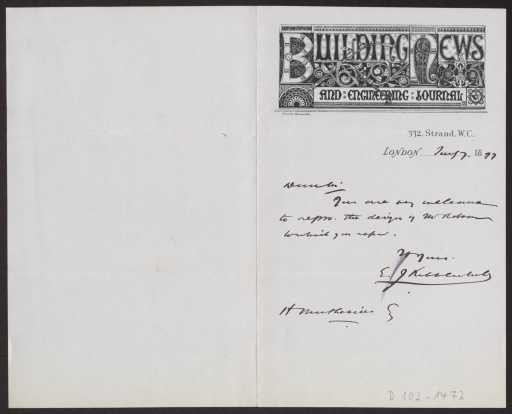 BUILDING NEWS
AND : ENGINEERING : JOURNAL
332, Strand, W.C.
LONDON 18 99
Dear Sir
You are very welcome
to repro. the design of Mr
to which you refer.
Yours
E. J.
H Muthesius
D 102-1472